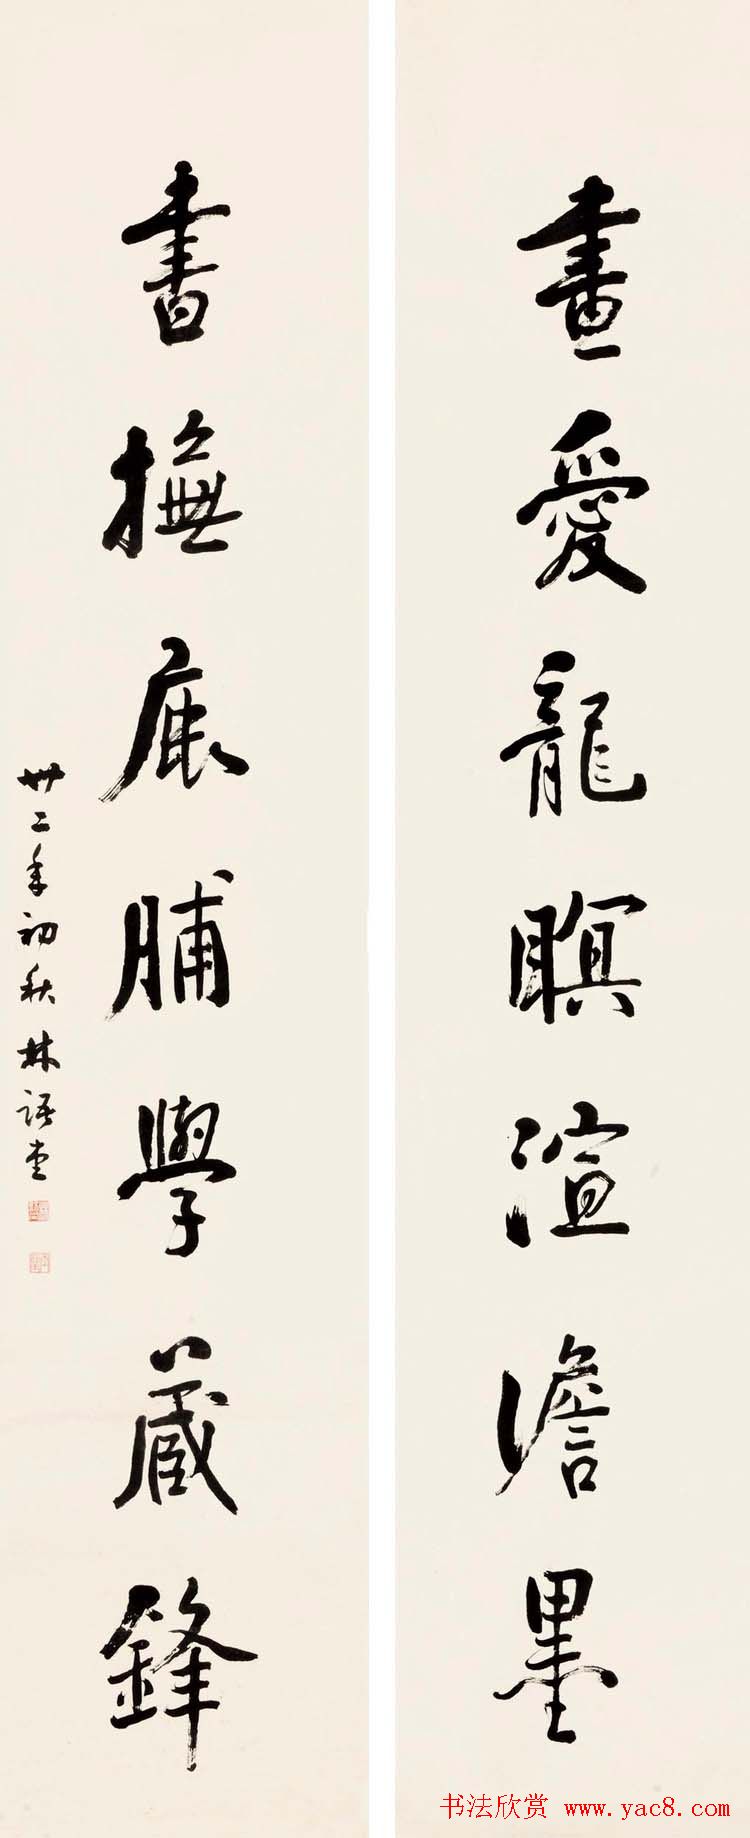 畫愛龍瞑渲澹墨
書撫鹿脯學藏鋒
卅二年初秋 林語堂
书法欣赏 www.yac8.com